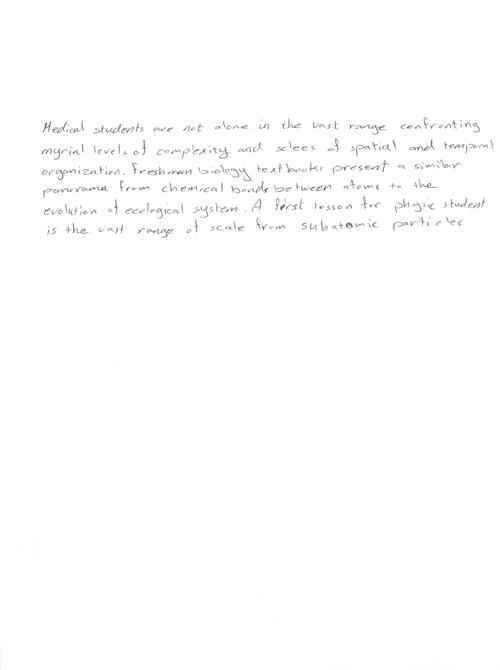 Medical students are not alone in the vast range confronting
myrial levels of complexity and sclees of spatial and temporal
organization. Freshman biology textbooks present a similar
panorama from chemical bonds between atoms to the
evolution of ecological system. A first lesson for physic student
is the vast range of scale from subatomic particles